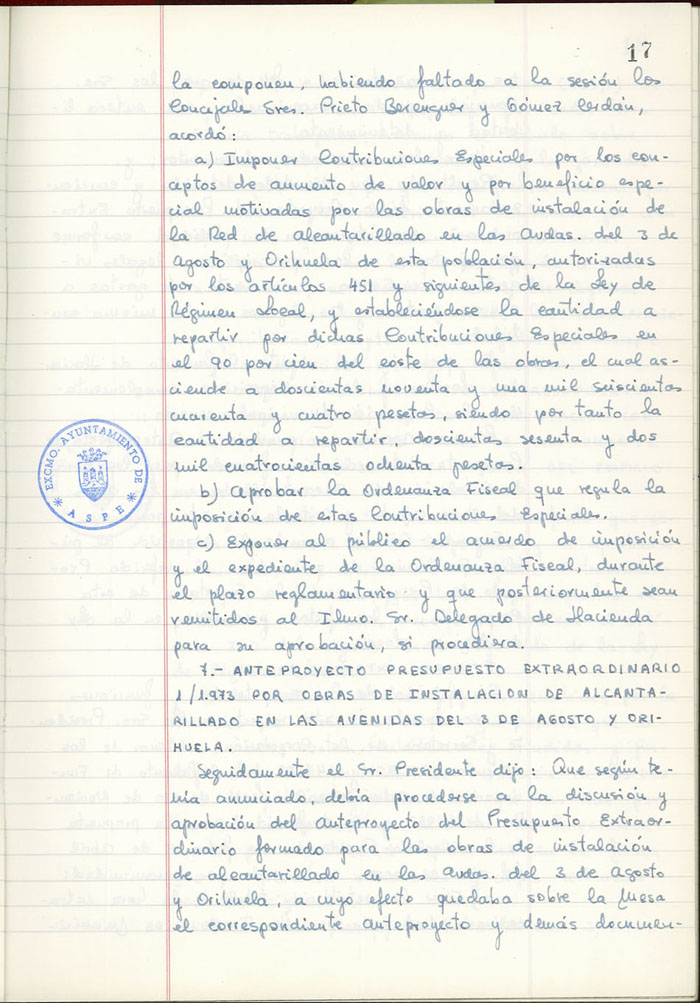 17
la componen, habiendo faltado a la sesión los
Concejales Sres. Prieto Berenguer y Gómez Cerdán,
acordó:
a) Imponer Contribuciones Especiales por los con-
ceptos de aumento de valor y por beneficio espe-
cial motivadas por las obras de instalación de
la Red de alcantarillado en las Avdas. del 3 de
Agosto y Orihuela de esta población, autorizadas
por los artículos 451 y siguientes de la Ley de
Régimen Local, y estableciéndose la cantidad a
repartir por dichas Contribuciones Especiales en
el 90 por cien del coste de las obras, el cual as-
ciende a doscientas noventa y una mil seiscientas
cuarenta y cuatro pesetas, siendo por tanto la
cantidad a repartir, doscientas sesenta y dos
mil cuatrocientas ochenta pesetas.
b) Aprobar la Ordenanza Fiscal que regula la
imposición de estas Contribuciones Especiales.
c) Exponer al público el acuerdo de imposición
y el expediente de la Ordenanza Fiscal, durante
el plazo reglamentario y que posteriormente sean
remitidos al Ilmo. Sr. Delegado de Hacienda
para su aprobación, si procediera.
7.- ANTEPROYECTO PRESUPUESTO EXTRAORDINARIO
1/1.973 POR OBRAS DE INSTALACION DE ALCANTA-
RILLADO EN LAS AVENIDAS DEL 3 DE AGOSTO Y ORI-
HUELA.
Seguidamente el Sr. Presidente dijo: Que según te-
nía anunciado, debía procederse a la discusión y
aprobación del Anteproyecto del Presupuesto Extraor-
dinario formado para las obras de instalación
de alcantarillado en las Avdas. del 3 de Agosto
y Orihuela, a cuyo efecto quedaba sobre la Mesa
el correspondiente anteproyecto y demás documen-
EXCMO. AYUNTAMIENTO DE
* ASPE *